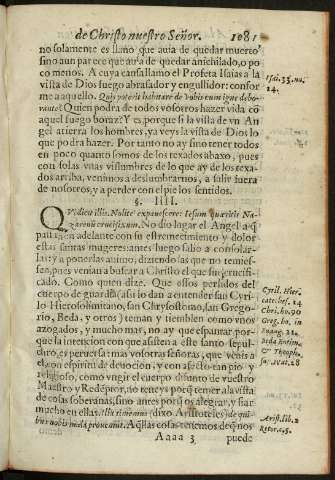 de Christo nuestro Señor. 1081
no solamente es llano que auia de quedar muerto
sino aun parece que auia de quedar anichilado, o po
co menos. A cuya causa llamo el Profeta Isaias a la
vista de Dios fuego abrasador y engullidor: confor
me a aquello. Quis poterit habitare de vobis cum igne deuo-
rante? Quien podra de todos vosotros hazer vida cõ
aquel fuego boraz? Y es, porque si la vista de vn An
gel atierra los hombres, ya veys la vista de Dios lo
que podra hazer. Por tanto no ay sino tener todos
en poco quanto somos de los texados abaxo, pues
con solas vnas vislumbres de lo que ay de los texa-
dos arriba, venimos a deslumbrarnos, a salir fuera
de nosotros, y a perder con el pie los sentidos.
§. IIII.
QVi dicit illis. Nolite expauescere: Iesum quæritis Na-
zarenũ crucifixum. No dio lugar el Angel a q̃
passassen adelante con su estremecimiento y dolor
estas santas mugeres: antes luego salio a consolar-
las: y a ponerlas animo, diziendolas que no temies-
sen, pues venian a buscar a Christo el que fue crucifi-
cado. Como quien dize. Que essos perdidos del
cuerpo de guarda (assi lo dan a entender san Cyri-
lo Hierosolimitano, san Chrysostomo, san Grego-
rio, Beda, y otros) teman y tiemblen como vnos
azogados, y mucho mas, no ay que espantar, porque
que la intencion con que assisten a este santo sepul-
chro, es peruersa: mas vosotras señoras, que venis a
el con espiritu de deuocion, y con afecto tan pio y
religioso, como vngir el cuerpo difunto de vuestro
Maestro y Redẽptor, no teneys porq̃ temer a la vista
de cosas soberanas, sino antes porq̃ os alegrar, y fiar
mucho en ellas. (dixo Aristoteles) de qui-
bus nobis mala proueniunt. Aq̃llas cosas tenemos deq̃ nos
Aaaa 3 puede
Isai. 33. nu.
14.
Cyril. Hier.
cateches. 14
Chri. ho. 90
Greg. ho. in
Euang. 21.
Beda
& Theophi.
su. Mat. 28
Arist. lib. 2
Retor. c. 5.